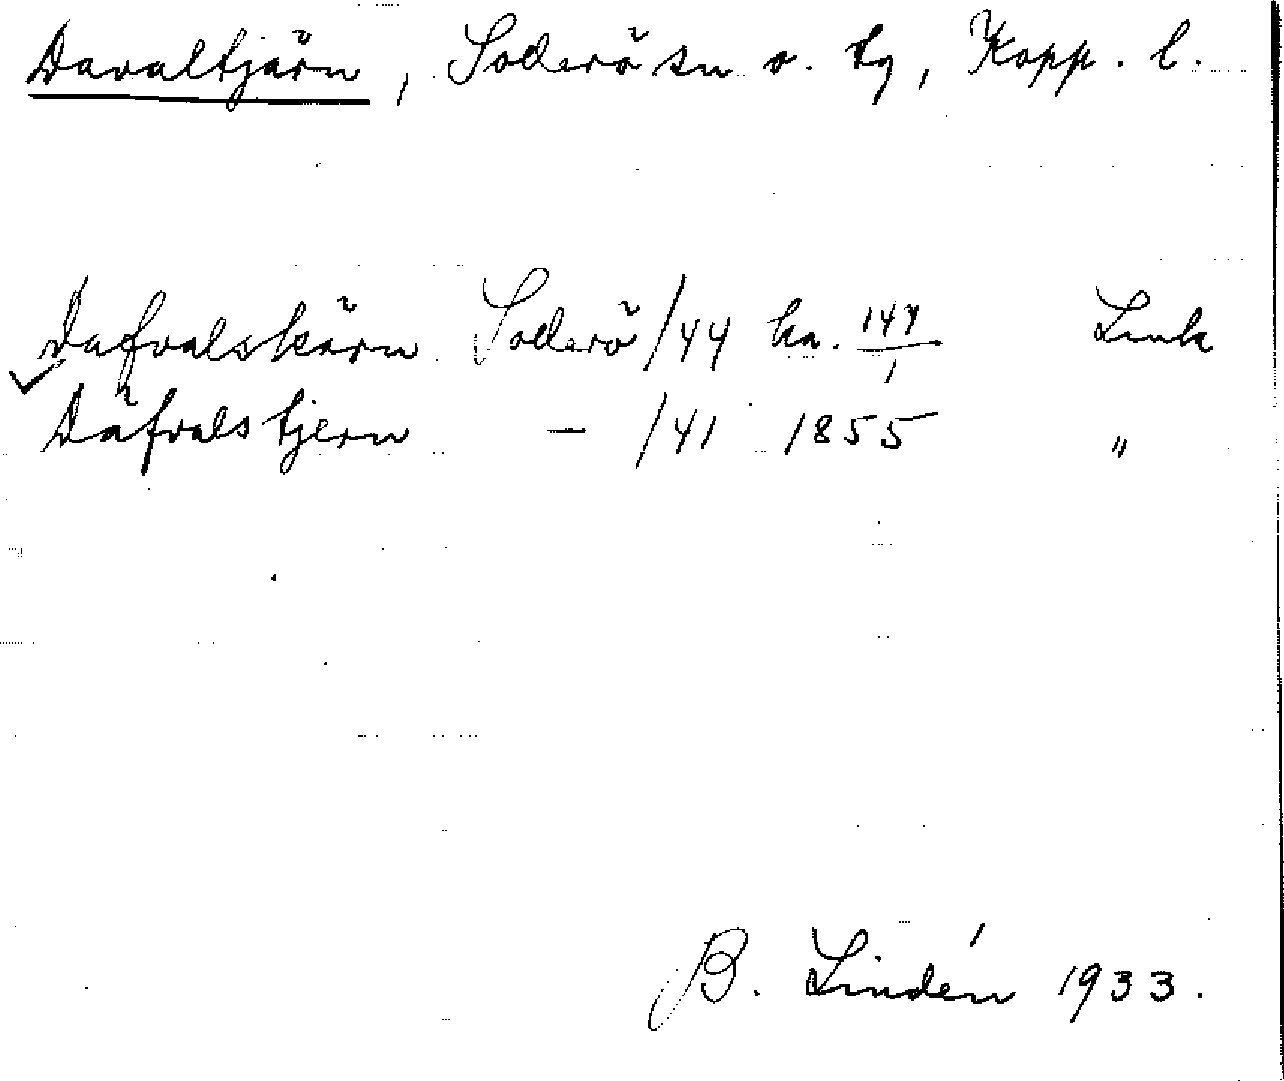 Davaltjärn, Soderö sn o. tg, Kopp. l.
Dafvalskärn Soderö /44 ka. 147/1 Lmk
Dåfvalstjern — /41 1855 "
B. Lindén 1933.